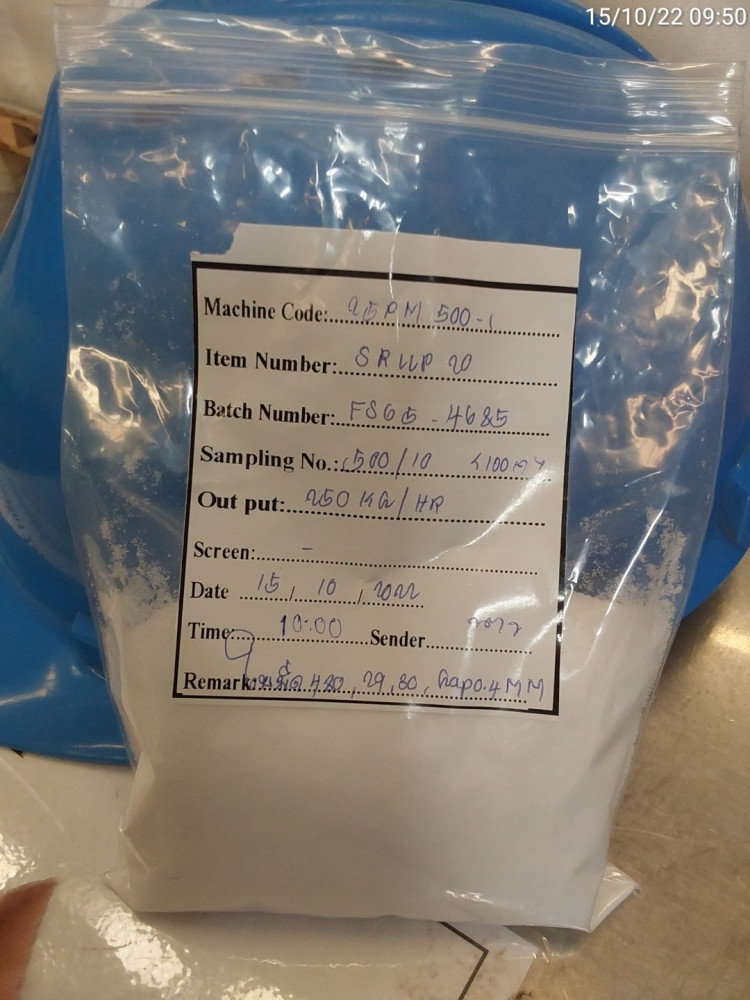 15/10/22 09:50
Machine Code: 25PM 500-1
Item Number: SRUP 20
Batch Number: FS65-4685
Sampling No.: 500/10
Out put: 250 KG/HR
Screen: -
Date 15 / 10 / 2022
Time: 10:00 Sender
Remark: 420, 29, 30, Gap 0.4 MM